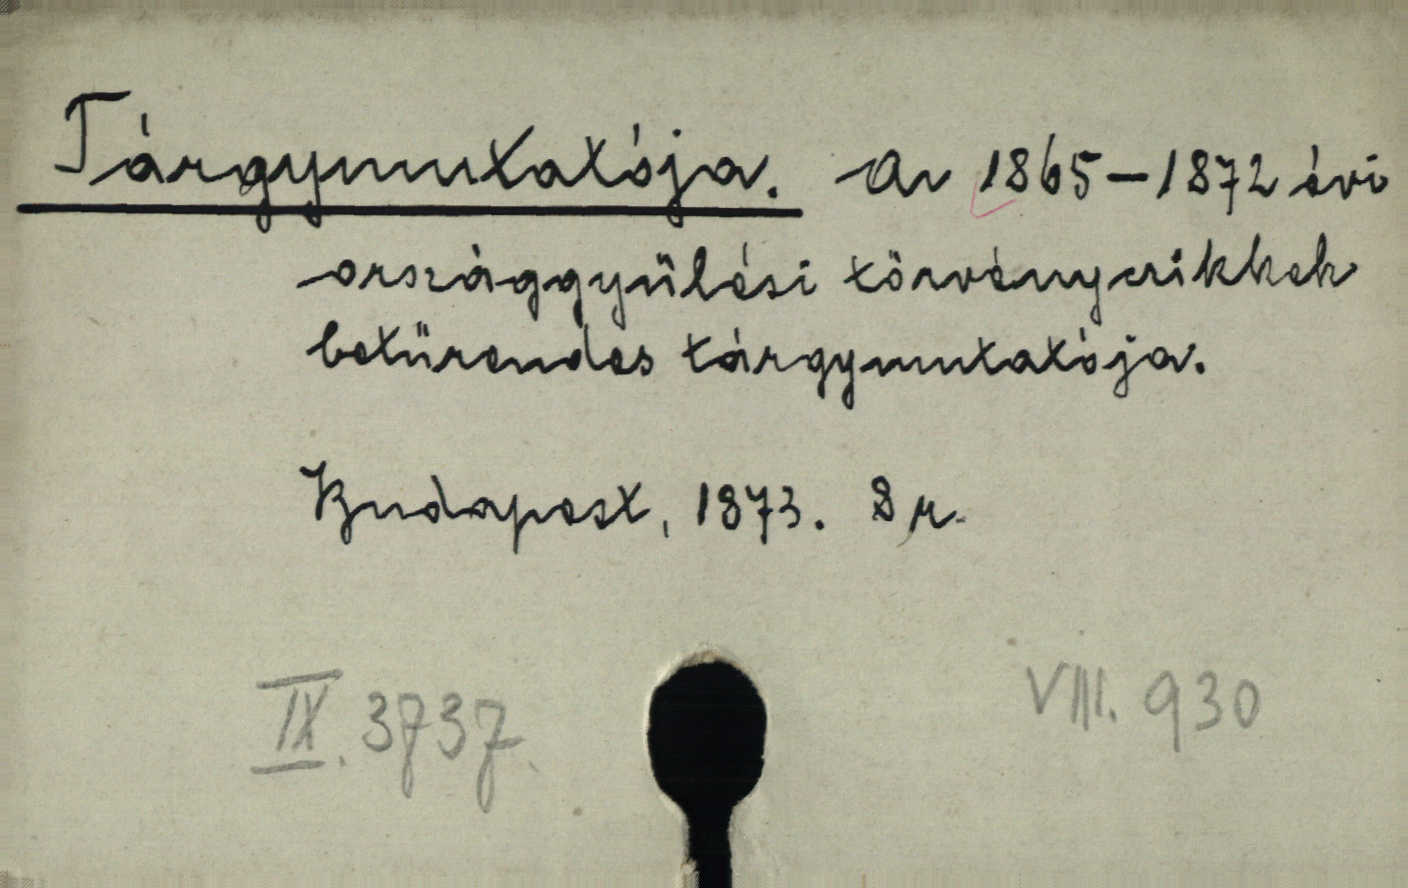 Tárgymutatója. Az 1865–1872 évi
országgyülési törvénycikkek
betürendes tárgymutatója.
Budapest, 1873. 8 r.
IX. 3737.
VIII. 930